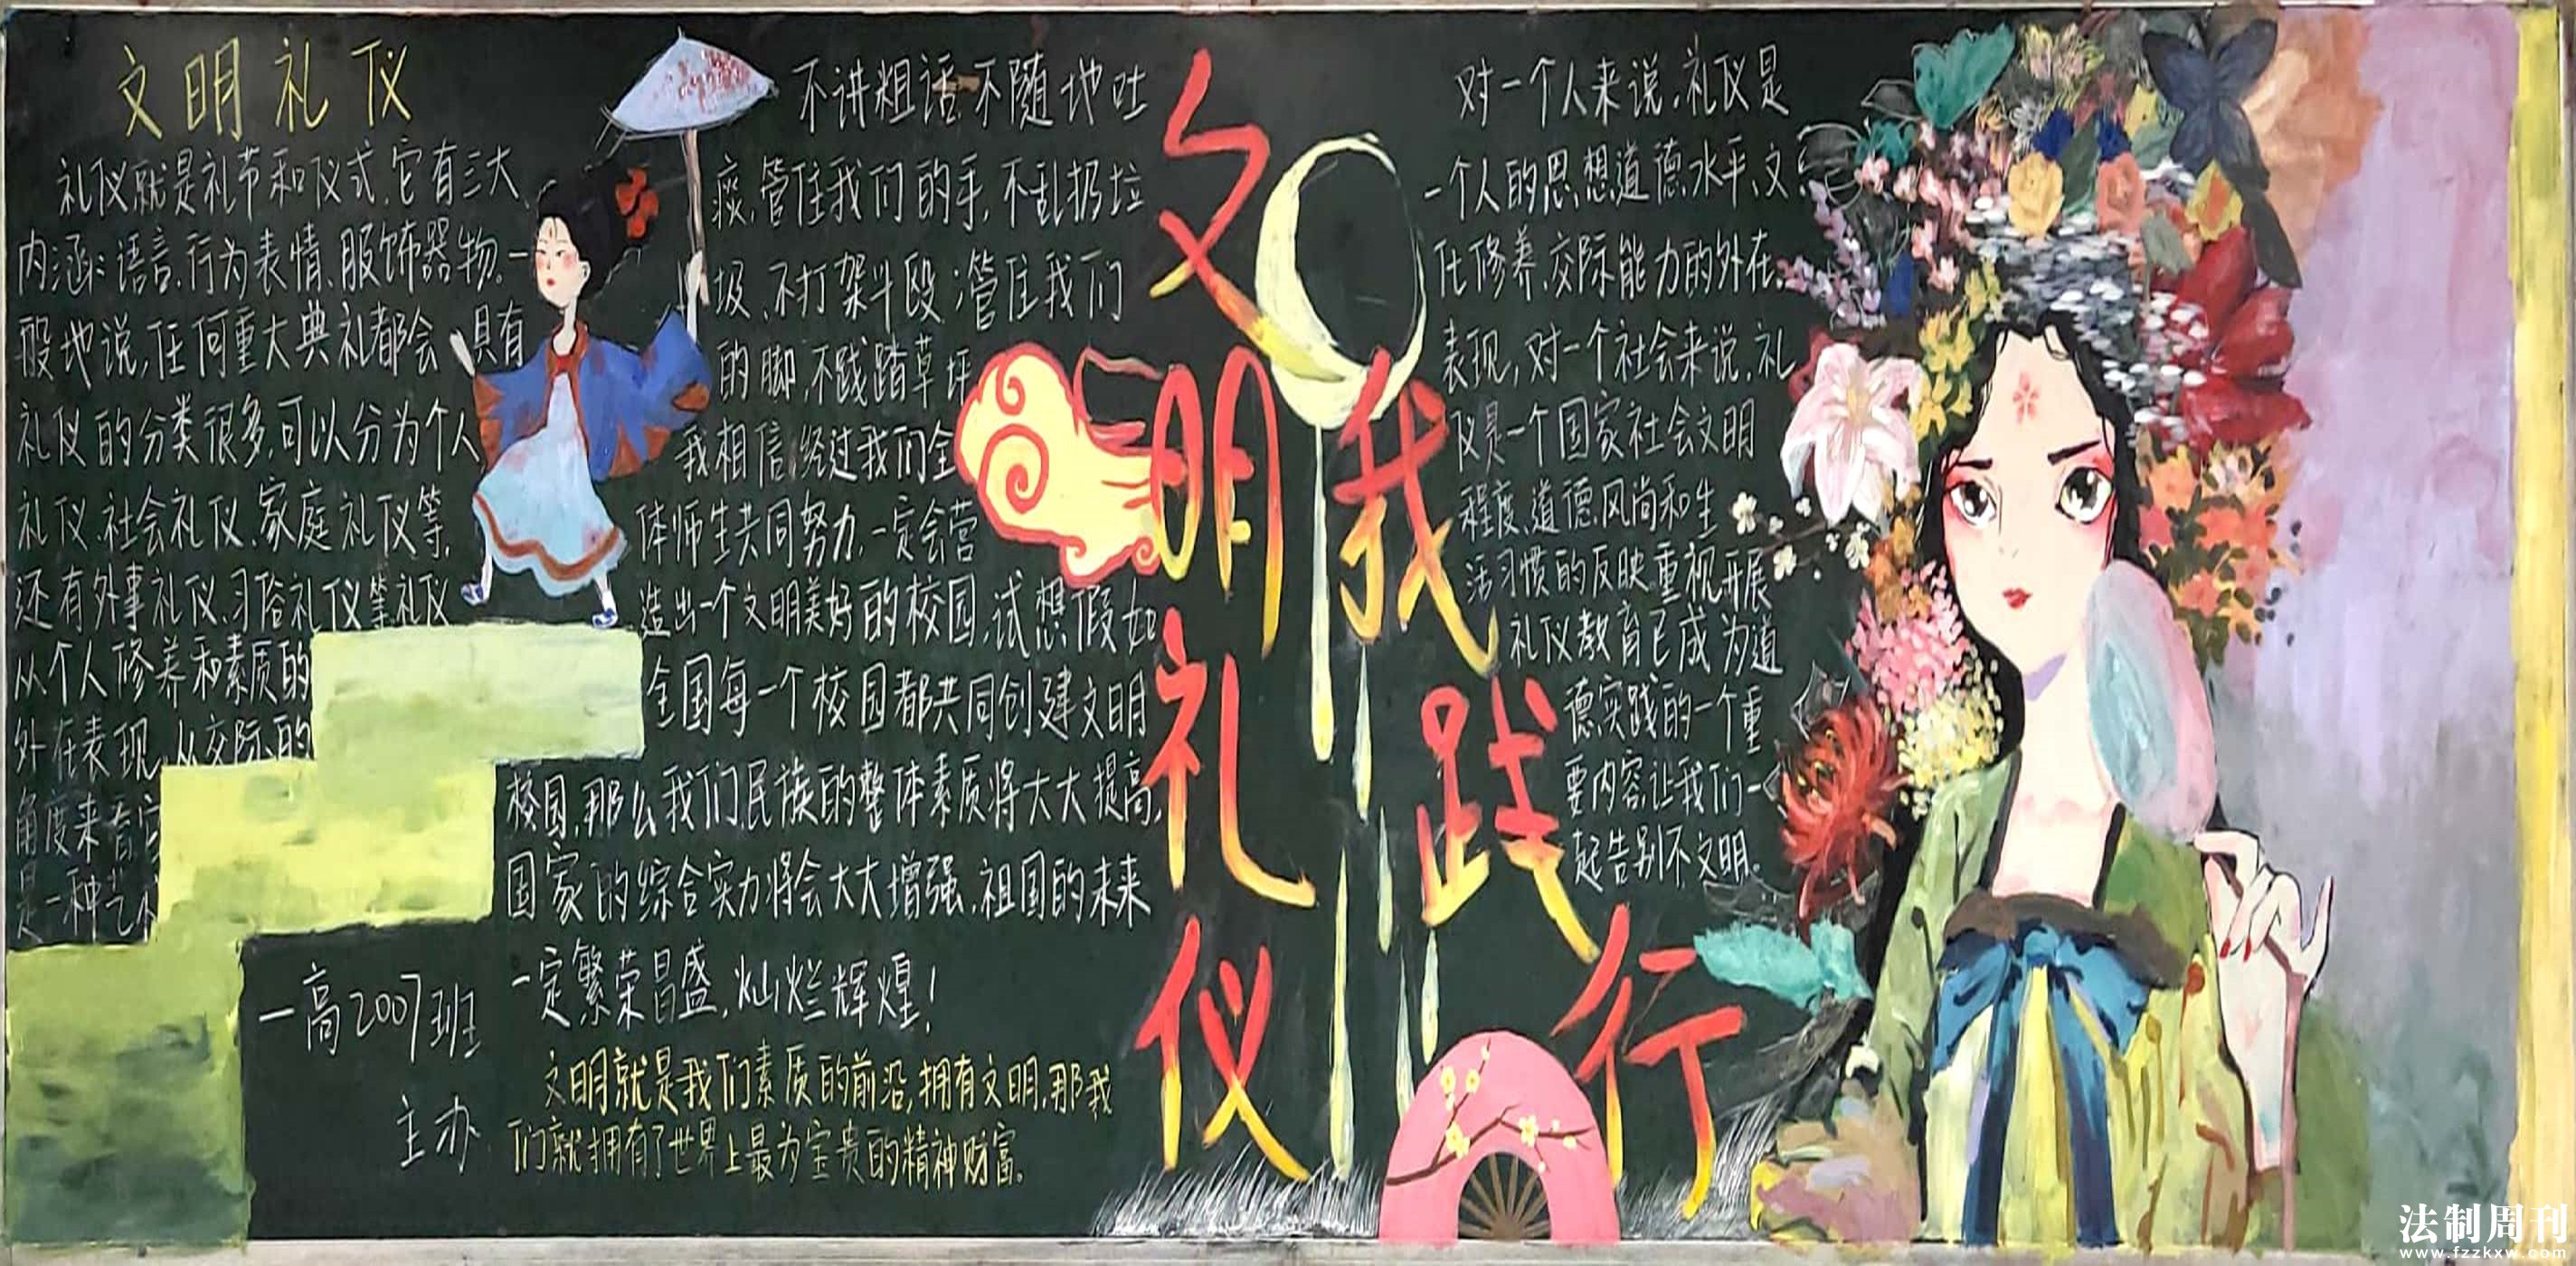 文明礼仪
礼仪就是礼节和仪式,它有三大
内涵:语言、行为表情、服饰器物。一
般地说,任何重大典礼都会具有
礼仪的分类很多,可以分为个人
礼仪、社会礼仪、家庭礼仪等,
还有外事礼仪、习俗礼仪等,礼仪
从个人修养和素质的
外在表现,从交际的
角度来看它
是一种艺术
一高2007班
主办
不讲粗话,不随地吐
痰,管住我们的手,不乱扔垃
圾、不打架斗殴;管住我们
的脚,不践踏草坪
我相信,经过我们全
体师生共同努力,一定会营
造出一个文明美好的校园,试想假如
全国每一个校园都共同创建文明
校园,那么我们民族的整体素质将大大提高,
国家的综合实力将会大大增强,祖国的未来
一定繁荣昌盛,灿烂辉煌!
文明就是我们素质的前沿,拥有文明,那我
们就拥有了世界上最为宝贵的精神财富。
文明礼仪
我践行
对一个人来说,礼仪是
一个人的思想道德水平、文
化修养、交际能力的外在
表现,对一个社会来说,礼
仪是一个国家社会文明
程度、道德风尚和生
活习惯的反映重视开展
礼仪教育已成为道
德实践的一个重
要内容,让我们一
起告别不文明。
法制周刊
www.fzzkxw.com